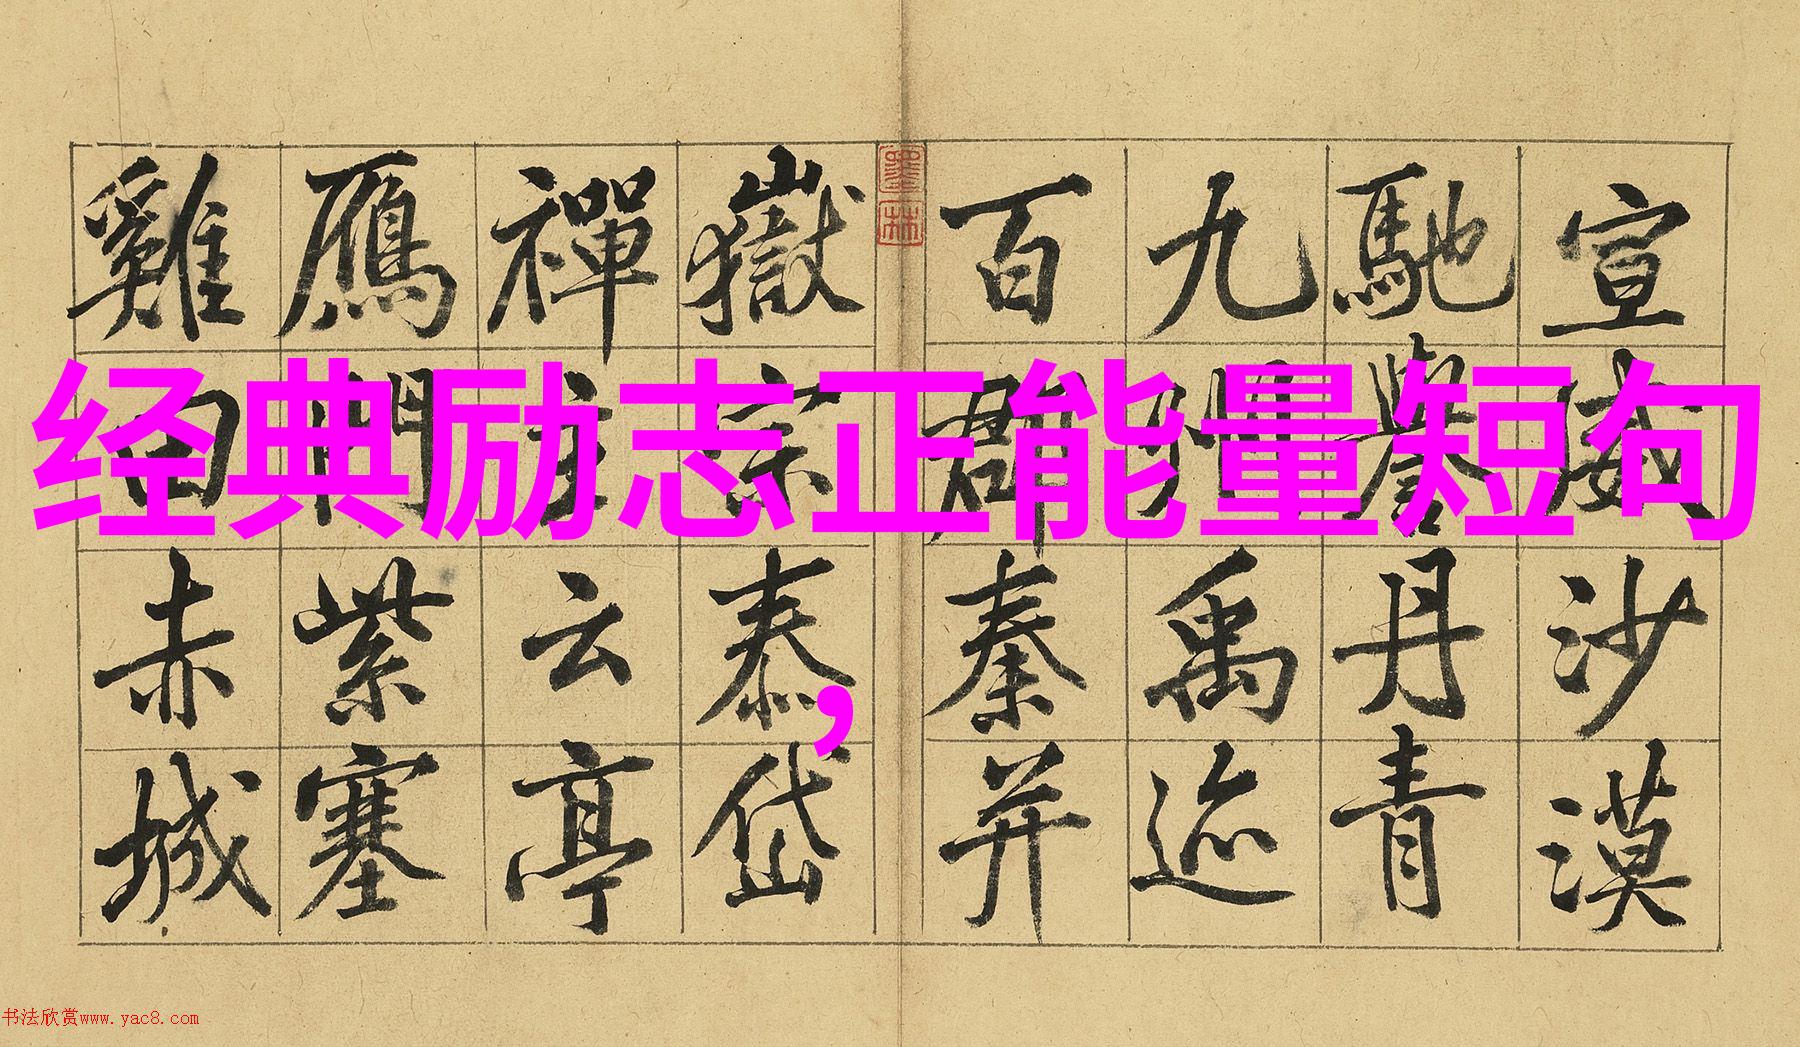 经典励志正能量短句
，
宣威沙漠
馳譽丹青
九州禹迹
百郡秦并
嶽宗泰岱
禪主云亭
鴈門紫塞
雞田赤城
墨林
书法欣赏www.yac8.com